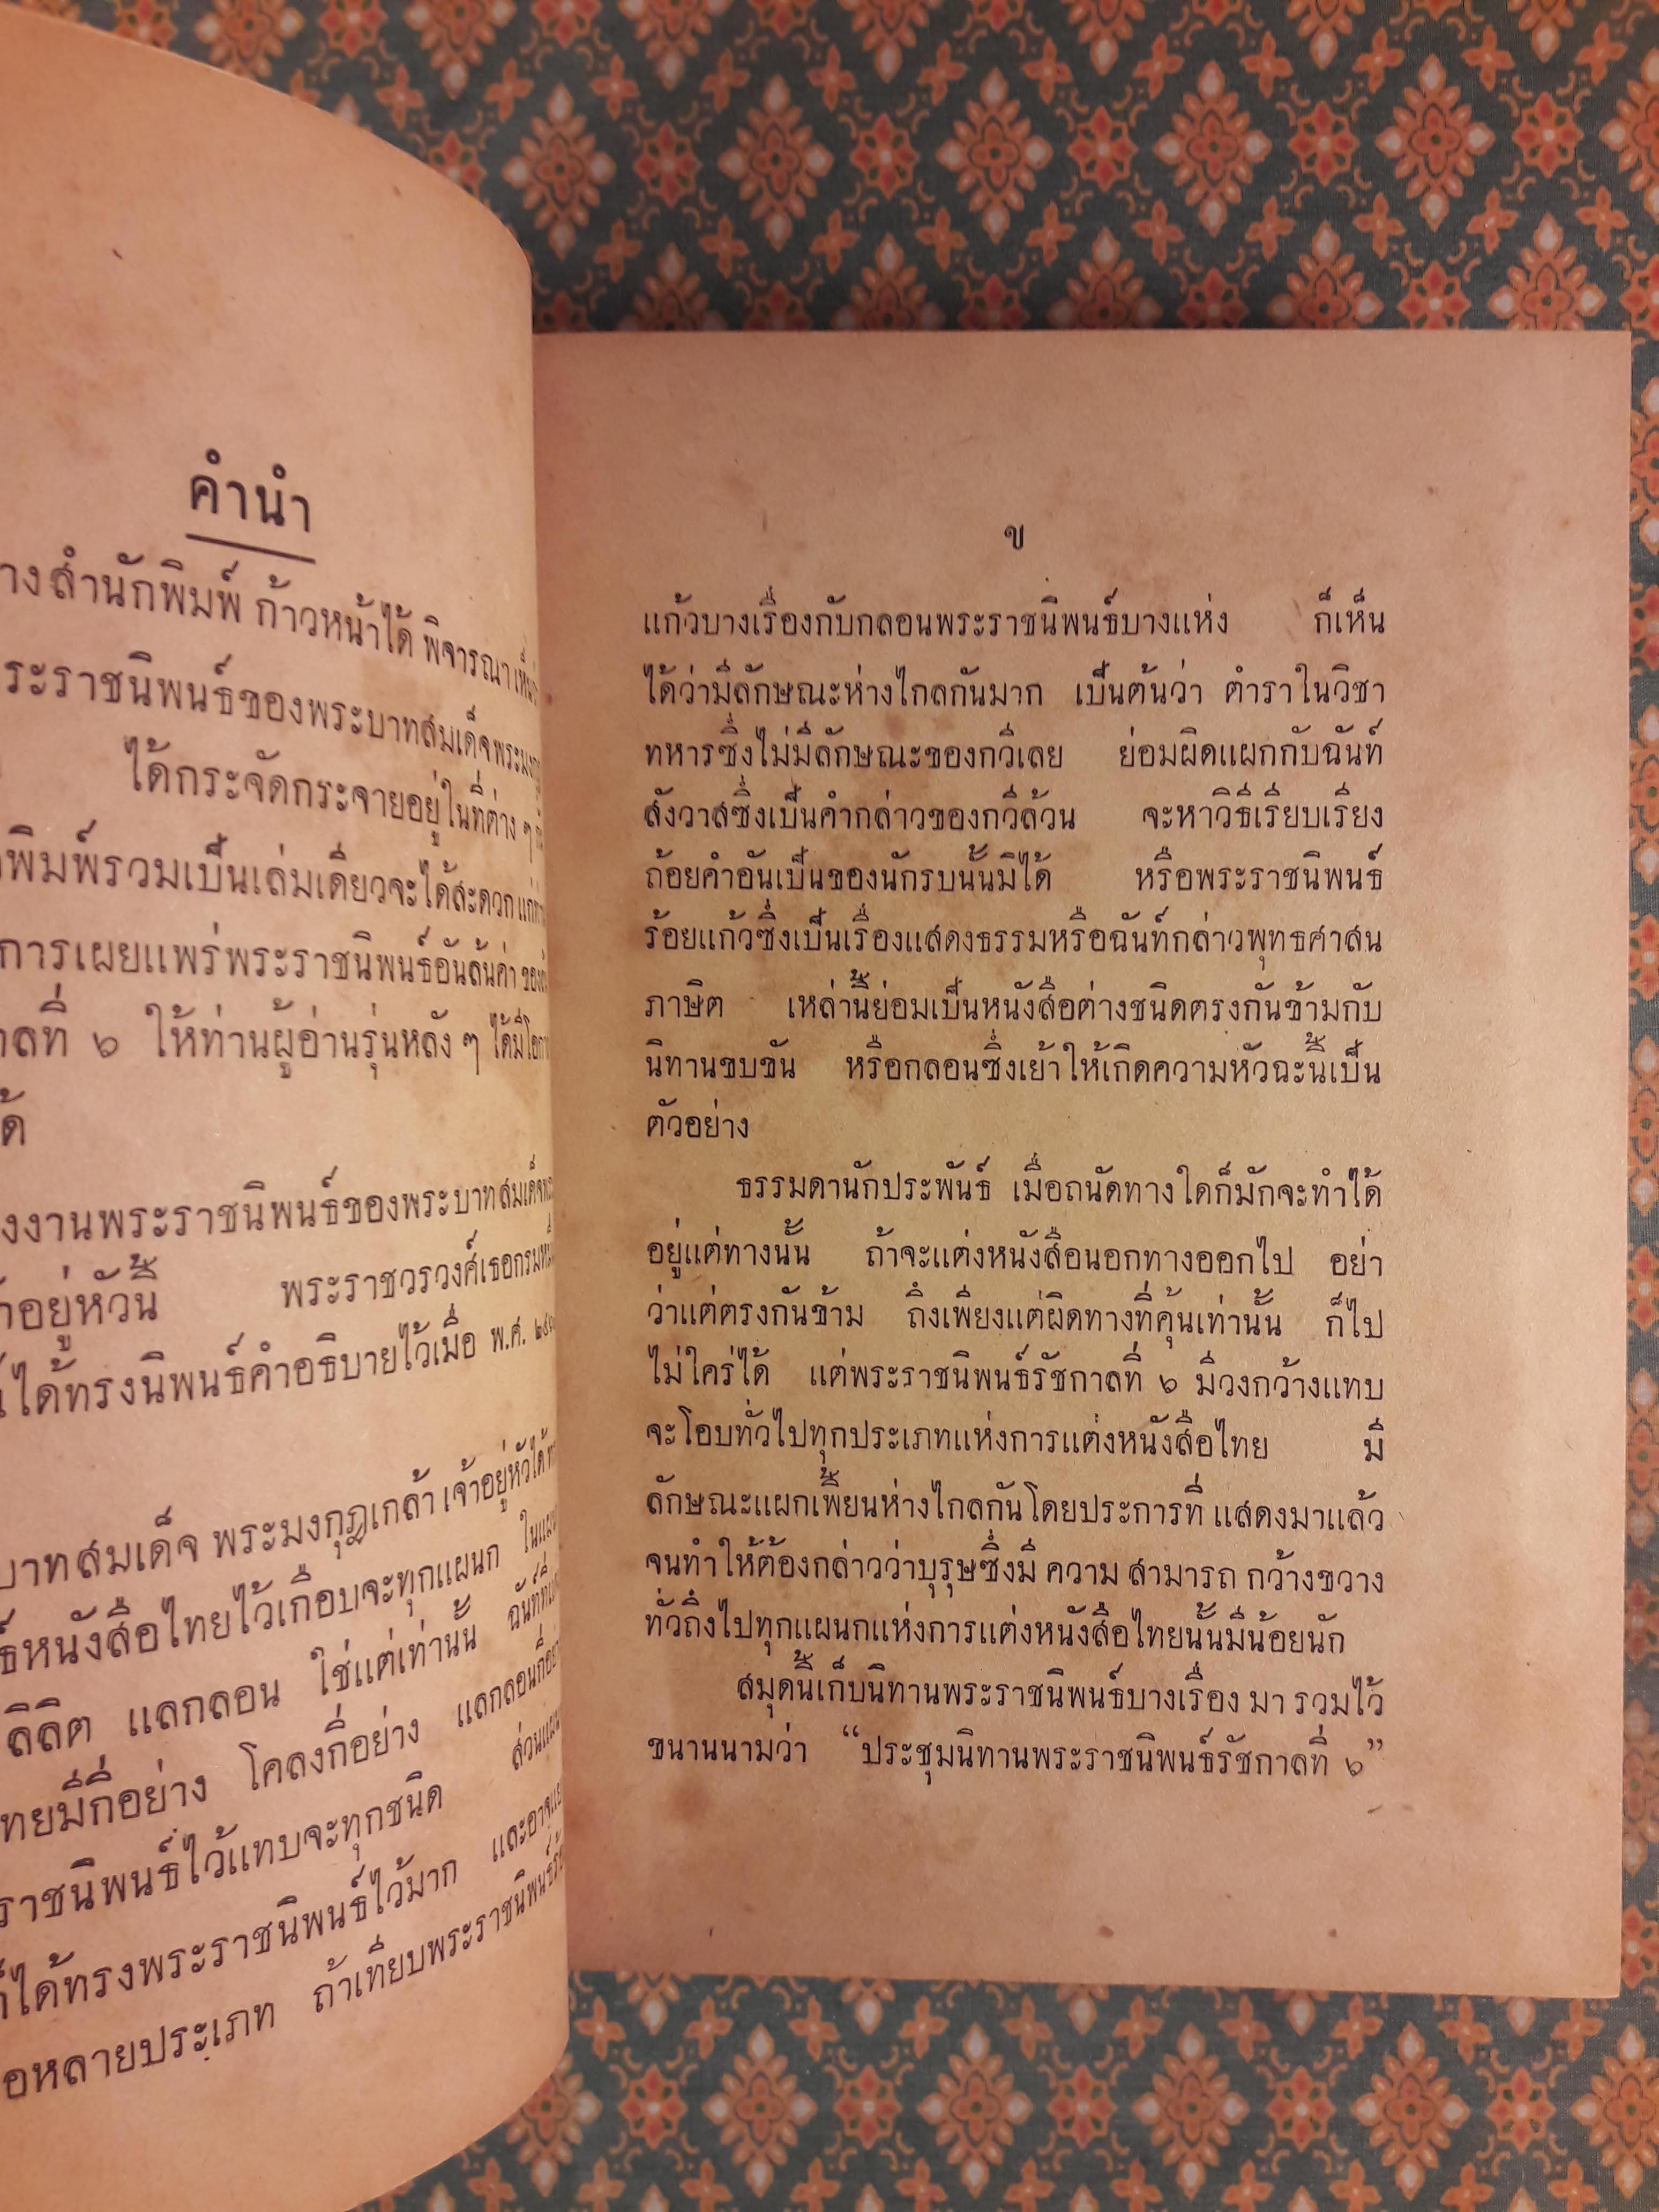 คำนำ
สำนักพิมพ์ ก้าวหน้าได้ พิจารณา
ระราชนิพนธ์ของพระบาทสมเด็จพระมงกุ
ได้กระจัดกระจายอยู่ในที่ต่าง ๆ
พิมพ์รวมเป็นเล่มเดียวจะได้สะดวก
การเผยแพร่พระราชนิพนธ์อันล้นค่า
ลที่ ๖ ให้ท่านผู้อ่านรุ่นหลัง ๆ ได้มี
ด้
งานพระราชนิพนธ์ของพระบาทสมเด็จ
อยู่หัวนี้ พระราชวรวงศ์เธอกรมหมื่
ได้ทรงนิพนธ์คำอธิบายไว้เมื่อ พ.ศ.
บาทสมเด็จ พระมงกุฎเกล้า เจ้าอยู่หัวได้
ธ์หนังสือไทยไว้เกือบจะทุกแผนก
ลิลิต แลกลอน ใช่แต่เท่านั้น ฉันท์ที่
ทยมีกี่อย่าง โคลงกี่อย่าง แลกลอนกี่
ราชนิพนธ์ไว้แทบจะทุกชนิด
ได้ทรงพระราชนิพนธ์ไว้มาก และอาจ
อหลายประเภท ถ้าเทียบพระราชนิพนธ์
ข
แก้วบางเรื่องกับกลอนพระราชนิพนธ์บางแห่ง ก็เห็น
ได้ว่ามีลักษณะห่างไกลกันมาก เป็นต้นว่า ตำราในวิชา
ทหารซึ่งไม่มีลักษณะของกวีเลย ย่อมผิดแผกกับฉันท์
สังวาสซึ่งเป็นคำกล่าวของกวีล้วน จะหาวิธีเรียบเรียง
ถ้อยคำอันเป็นของนักรบนั้นมิได้ หรือพระราชนิพนธ์
ร้อยแก้วซึ่งเป็นเรื่องแสดงธรรมหรือฉันท์กล่าวพุทธศาสน
ภาษิต เหล่านี้ย่อมเป็นหนังสือต่างชนิดตรงกันข้ามกับ
นิทานขบขัน หรือกลอนซึ่งเย้าให้เกิดความหัวฉะนี้เป็น
ตัวอย่าง
ธรรมดานักประพันธ์ เมื่อถนัดทางใดก็มักจะทำได้
อยู่แต่ทางนั้น ถ้าจะแต่งหนังสือนอกทางออกไป อย่า
ว่าแต่ตรงกันข้าม ถึงเพียงแต่ผิดทางที่คุ้นเท่านั้น ก็ไป
ไม่ใคร่ได้ แต่พระราชนิพนธ์รัชกาลที่ ๖ มีวงกว้างแทบ
จะโอบทั่วไปทุกประเภทแห่งการแต่งหนังสือไทย มี
ลักษณะแผกเพี้ยนห่างไกลกันโดยประการที่ แสดงมาแล้ว
จนทำให้ต้องกล่าวว่าบุรุษซึ่งมี ความ สามารถ กว้างขวาง
ทั่วถึงไปทุกแผนกแห่งการแต่งหนังสือไทยนั้นมีน้อยนัก
สมุดนี้เก็บนิทานพระราชนิพนธ์บางเรื่อง มา รวมไว้
ขนานนามว่า “ประชุมนิทานพระราชนิพนธ์รัชกาลที่ ๖”